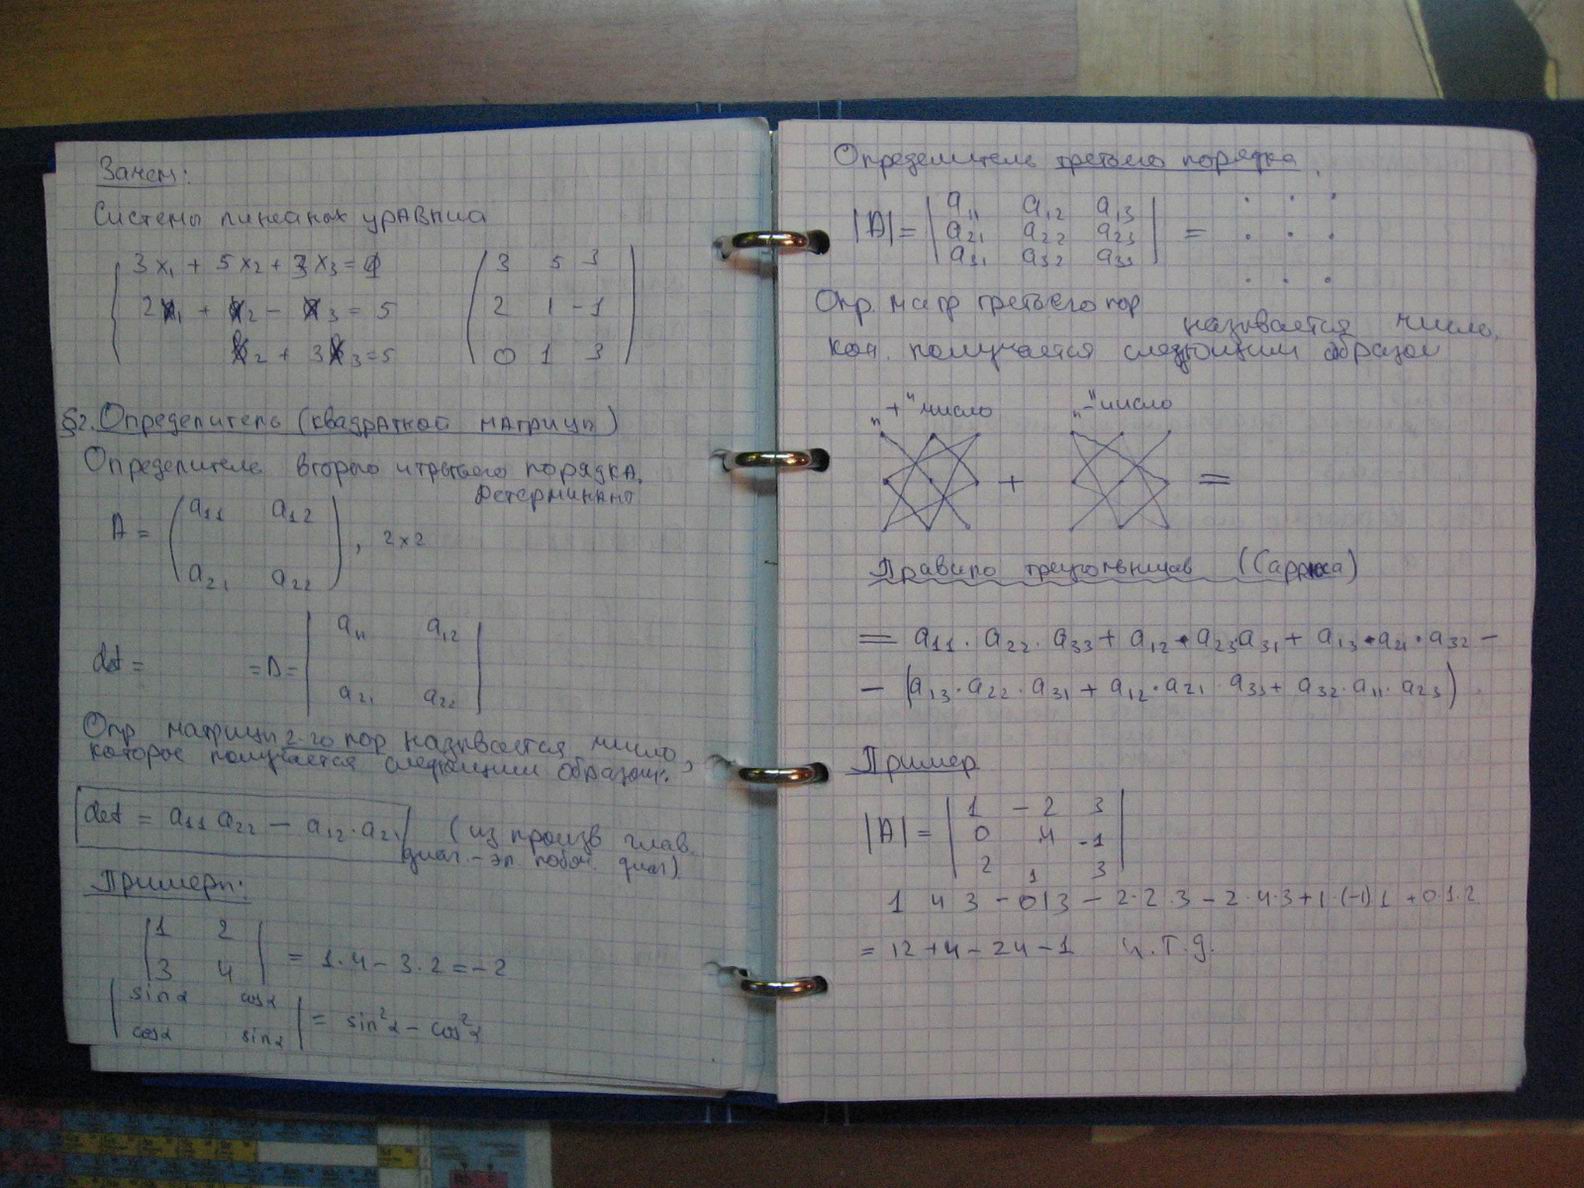 Зачем:
Системы линейных уравнца
3x₁ + 5x₂ + 3x₃ = 4
2x₁ + x₂ - x₃ = 5
x₂ + 3x₃ = 5
3 5 3
2 1 -1
0 1 3
§2. Определитель (квадратной матрицы)
Определитель второго и третьего порядка.
Детерминант
A = ( a₁₁ a₁₂
a₂₁ a₂₂ ), 2×2
det = = D = | a₁₁ a₁₂
a₂₁ a₂₂ |
Опр. матрицы 2-го пор называется число,
которое получается следующим образом:
det = a₁₁ a₂₂ - a₁₂·a₂₁ (из произв глав.
диаг. - эл. побоч. диаг)
Примеры:
| 1 2
3 4 | = 1·4 - 3·2 = -2
| sinα cosα
cosα sinα | = sin²α - cos²α
Определитель третьего порядка
|A| = | a₁₁ a₁₂ a₁₃
a₂₁ a₂₂ a₂₃ | =
a₃₁ a₃₂ a₃₃
Опр. матр третьего пор
называется число,
кот. получается следующим образом
"+" число "-" число
+ =
Правило треугольников (Саррюса)
= a₁₁·a₂₂·a₃₃ + a₁₂·a₂₃a₃₁ + a₁₃·a₂₁·a₃₂ -
- (a₁₃·a₂₂·a₃₁ + a₁₂·a₂₁·a₃₃ + a₃₂·a₁₁·a₂₃)
Пример
|A| = | 1 -2 3
0 4 -1
2 1 3 |
1 4 3 - 013 - 2·2·3 - 2·4·3 + 1·(-1)1 + 0·1·2
= 12 + 4 - 24 - 1 ч.т.д.